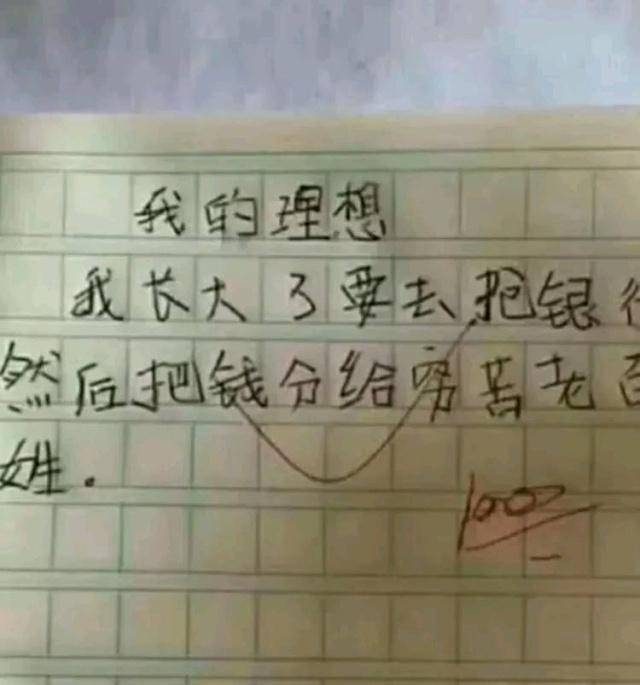 我的理想
我长大了要去抢银行
然后把钱分给穷苦老百
姓.
100